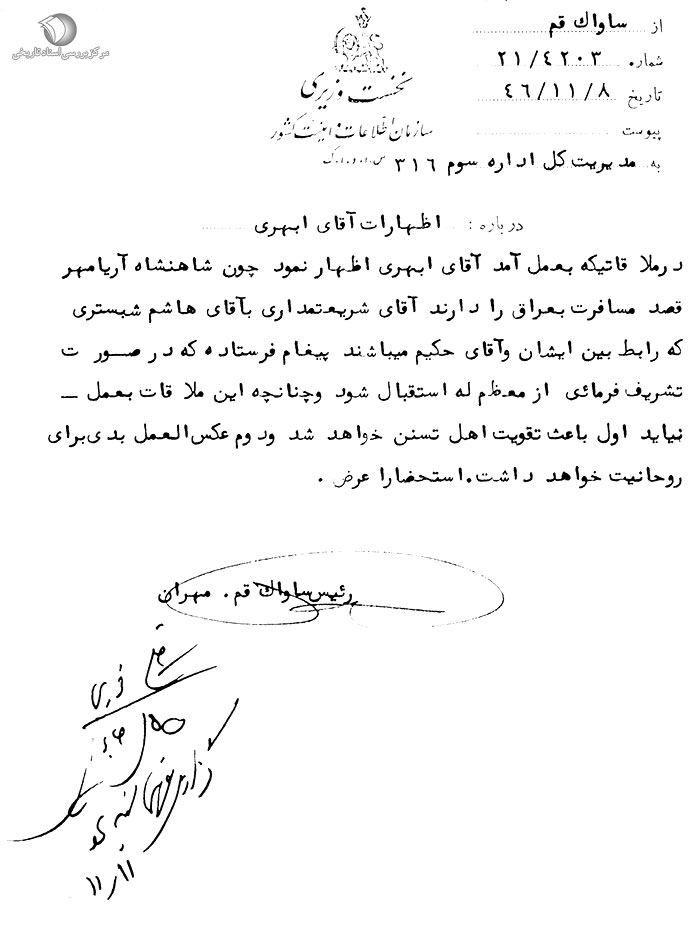 مرکز بررسی اسناد تاریخی
از ساواك قم
شماره ۲۱/٤۲۰۳
تاریخ ٤٦/۱۱/۸
پیوست
نخست وزیری
سازمان اطلاعات و امنیت کشور
س.ا.و.ا.ک
به مدیریت کل اداره سوم ۳۱٦
درباره: اظهارات آقای ابهری
درملاقاتیکه بعمل آمد آقای ابهری اظهار نمود چون شاهنشاه آریامهر
قصد مسافرت بعراق را دارند آقای شریعتمداری بآقای هاشم شبستری
که رابط بین ایشان وآقای حکیم میباشند پیغام فرستاده که در صورت
تشریف فرمائی از معظم له استقبال شود وچنانچه این ملاقات بعمل ـ
نیاید اول باعث تقویت اهل تسنن خواهد شد ودوم عکس العمل بدی برای
روحانیت خواهد داشت. استحضارا عرض .
رئیس ساواك قم . مهران
۱۱/۱۱